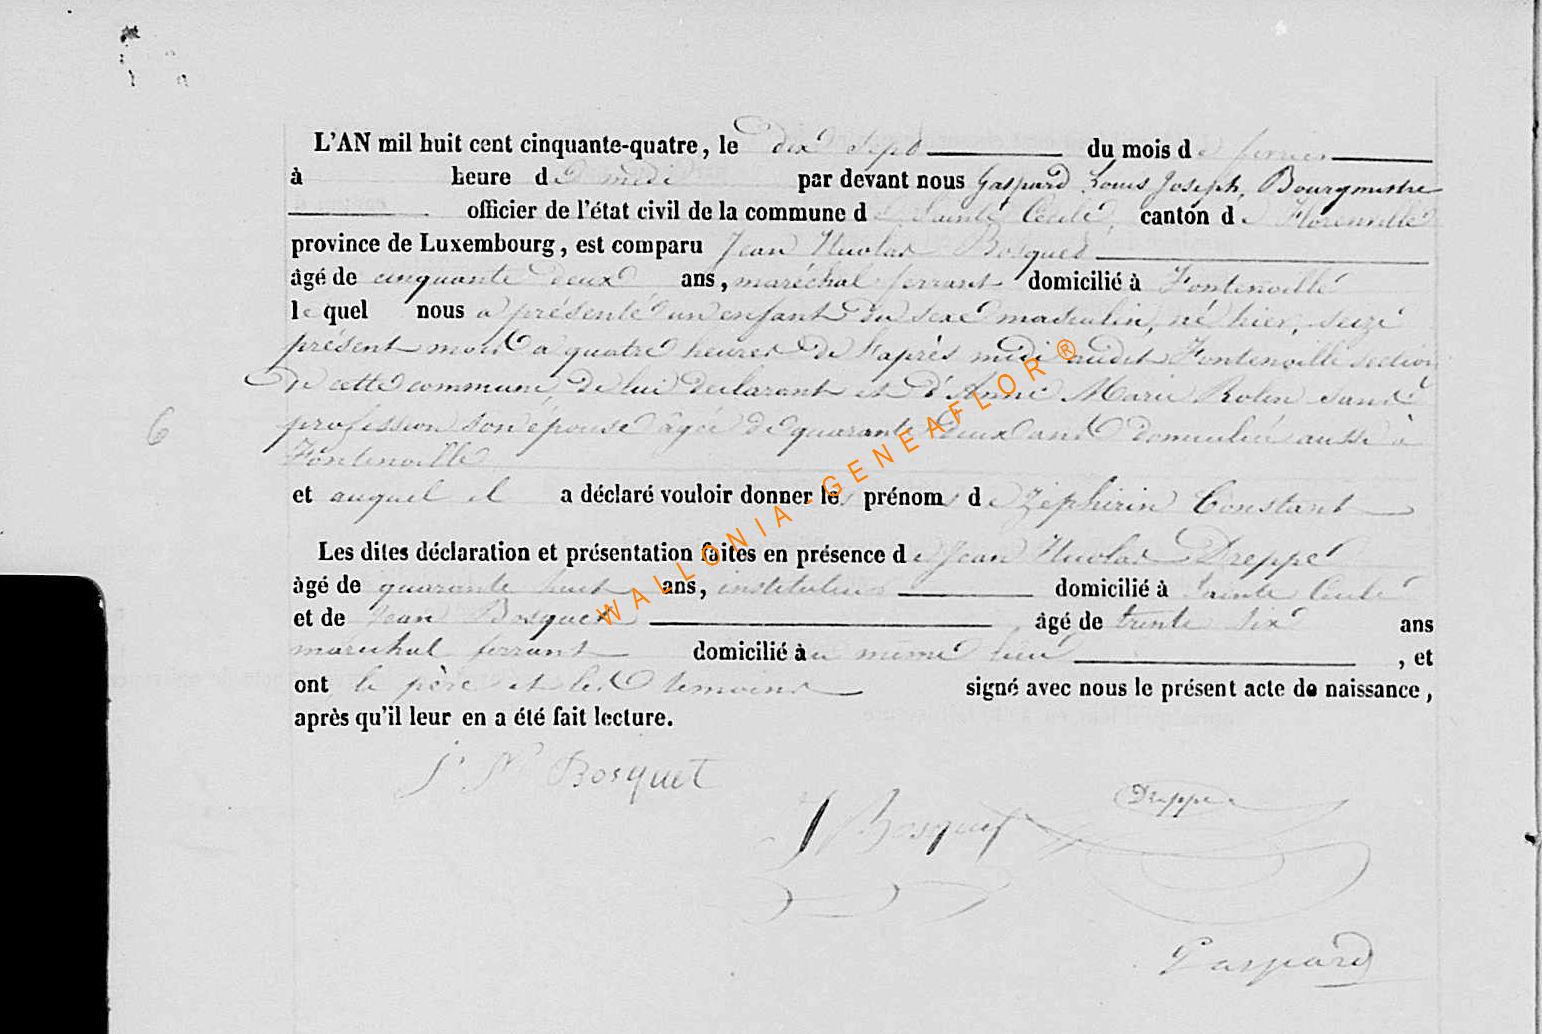 L'AN mil huit cent cinquante-quatre, le dix sept du mois de fevrier
à heure de midi par devant nous Gaspard Louis Joseph, Bourgmestre
officier de l'état civil de la commune de Sainte Cecile, canton de Florenville
province de Luxembourg, est comparu Jean Nicolas Bosquet
âgé de cinquante deux ans, maréchal ferrant domicilié à Fontenoille
lequel nous a présenté un enfant du sexe masculin, né hier, seize
présent mois a quatre heures de l'après midi audit Fontenoille section
de cette commune, de lui declarant et d'Anne Marie Rolin sans
profession son épouse âgée de quarante deux ans domiciliée aussi à
Fontenoille
6
et auquel il a déclaré vouloir donner les prénoms de Zéphirin Constant
Les dites déclaration et présentation faites en présence de Jean Nicolas Dreppe
âgé de quarante huit ans, instituteur domicilié à Sainte Cecile
et de Jean Bosquet âgé de trente six ans
marechal ferrant domicilié au même lieu , et
ont le père et les temoins signé avec nous le présent acte de naissance,
après qu'il leur en a été fait lecture.
J. N. Bosquet
Dreppe
J Bosquet
Gaspard
WALLONIA-GENEAFLOR ®